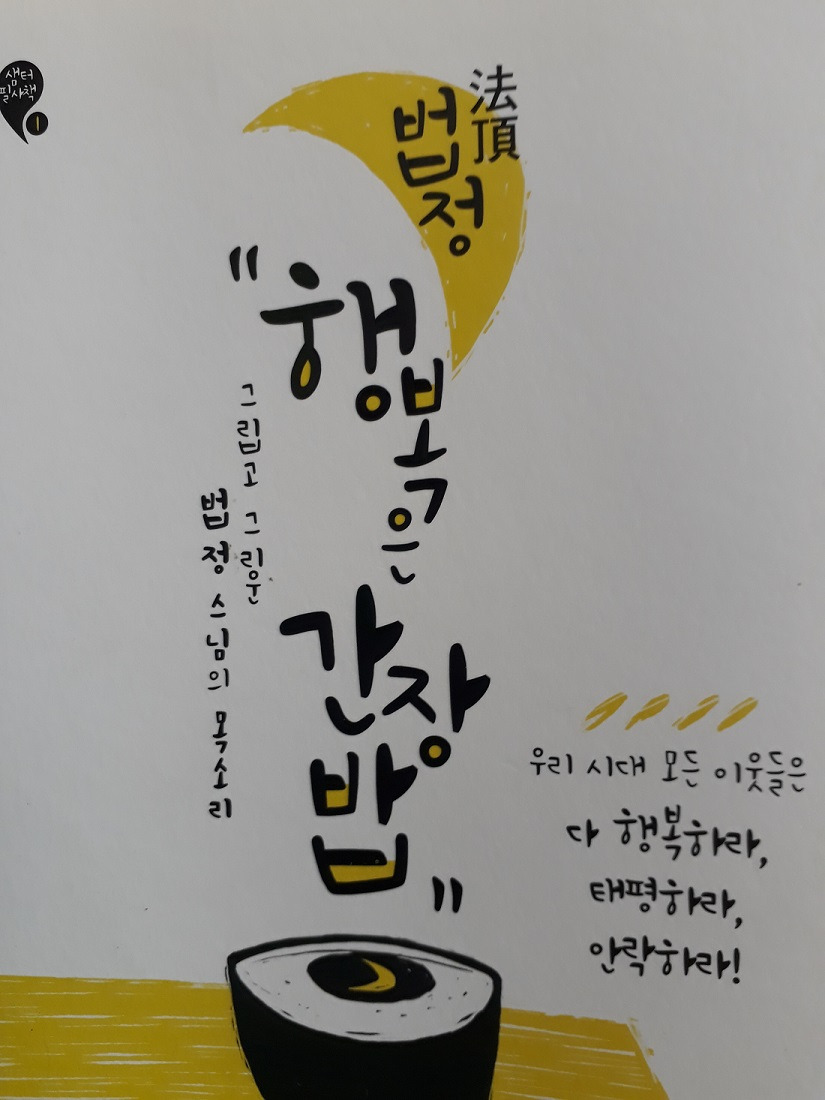 샘터
필사책
1
法頂
법정
"행복은
간장
밥"
그립고 그리운
법정 스님의 목소리
우리 시대 모든 이웃들은
다 행복하라,
태평하라,
안락하라!